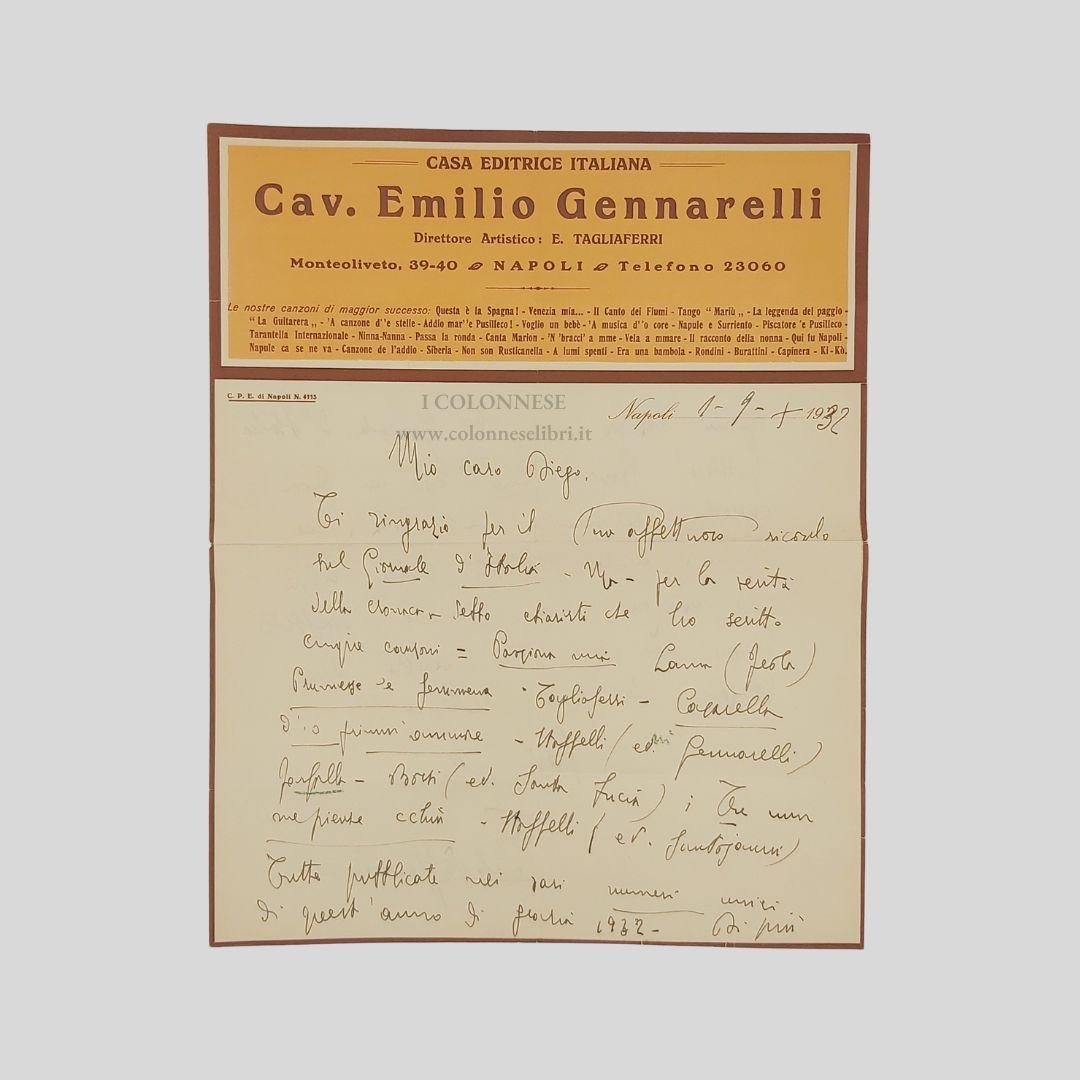 CASA EDITRICE ITALIANA
Cav. Emilio Gennarelli
Direttore Artistico: E. TAGLIAFERRI
Monteoliveto, 39-40 NAPOLI Telefono 23060
Le nostre canzoni di maggior successo: Questa è la Spagna! - Venezia mia... - Il Canto dei Fiumi - Tango "Mariù „ - La leggenda del paggio -
"La Guitarera „ - 'A canzone d''e stelle - Addio mar''e Pusilleco! - Voglio un bebè - 'A musica d''o core - Napule e Surriento - Piscatore 'e Pusilleco -
Tarantella Internazionale - Ninna-Nanna - Passa la ronda - Canta Marion - 'N 'bracci' a mme - Vela a mmare - Il racconto della nonna - Qui fu Napoli -
Napule ca se ne va - Canzone de l'addio - Siberia - Non son Rusticanella - A lumi spenti - Era una bambola - Rondini - Burattini - Capinera - Ki-Kò.
C. P. E. di Napoli N. 4113
I COLONNESE
www.colonneselibri.it
Napoli 1-9- 1932
Mio caro Diego,
Ti ringrazio per il Tuo affettuoso ricordo
sul Giornale d'Italia - Ma - per la verità
della cronaca - chiarirti che ho scritto
cinque canzoni = Passiona mia Lama
Prumesse 'e femmena Tagliaferri -
d''o primm'ammore - Staffelli (ed. Gennarelli)
(ed. Santa Lucia) i Tre
me pienze cchiù - Staffelli (ed. Santojanni)
Tutte pubblicate nei vari numeri unici
di quest'anno di grazia 1932 - Di più